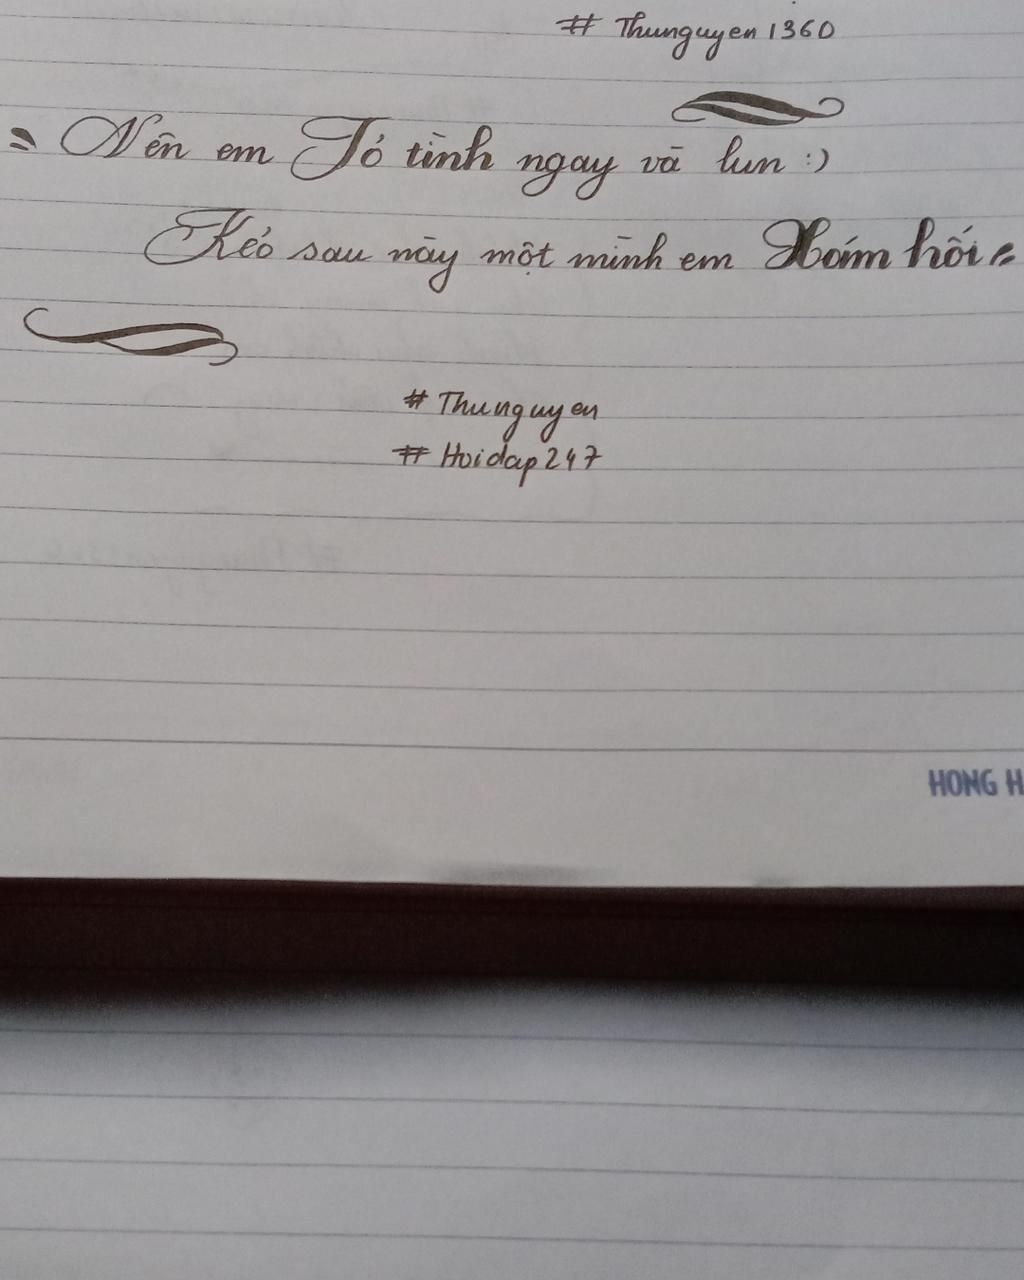 # Thunguyen1360
" Nên em Tỏ tình ngay và lun :)
Kẻo sau này một mình em Xám hối "
# Thunguyen
# Hoidap247
HONG H